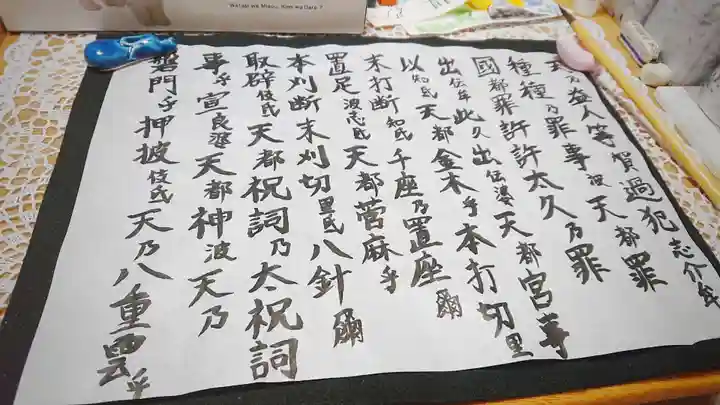 Watashi wa Miracu, Kimi wa Dare ?
天乃益人等賀過犯志介牟
種種乃罪事波天都罪
國都罪許許太久乃罪
出伝牟此久出伝婆天都宮事
以知氐天都金木乎本打切里
末打断知氐千座乃置座爾
置足波志氐天都菅麻乎
本刈断末刈切里氐八針爾
取辟伎氐天都祝詞乃太祝詞
事乎宣良澄天都神波天乃
磐門乎押披伎氐天乃八重雲乎